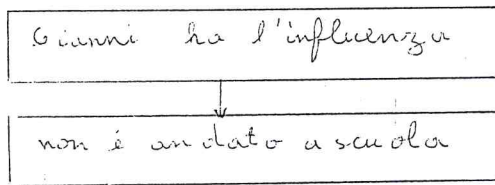 Gianni ha l'influenza
non é andato a scuola